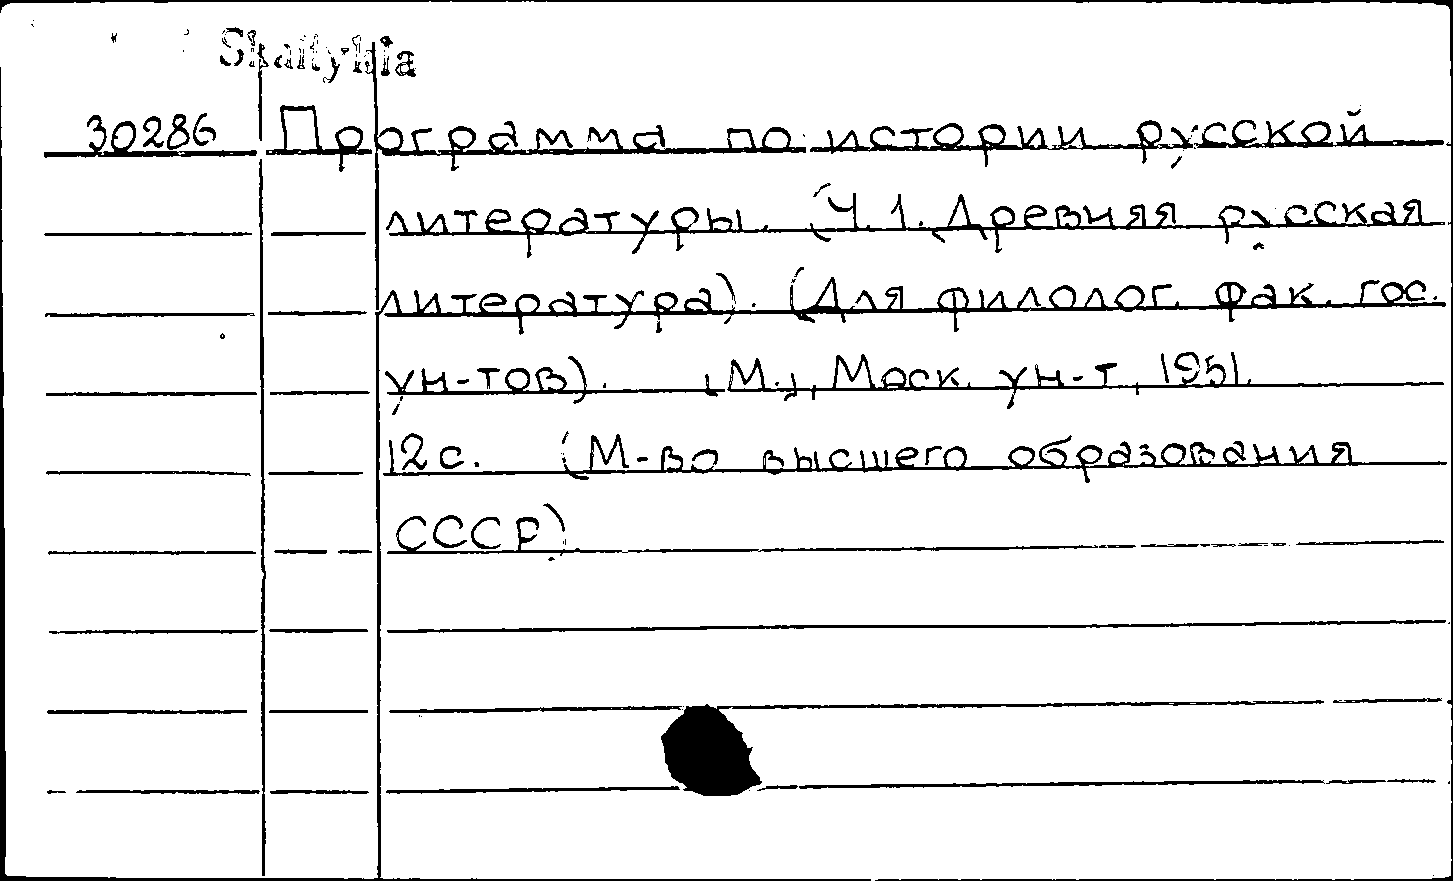 Skaitykla
30286 Программа по истории русской
литературы. (Ч. 1. Древняя русская
литература). (Для филолог. фак. гос.
ун-тов). [М.], Моск. ун-т, 1951.
12 с. (М-во высшего образования
СССР)